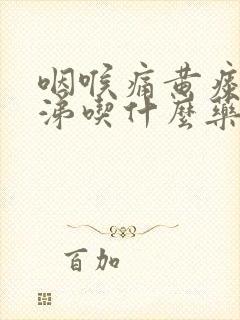 咽喉痛黃痰
涕喫什麼藥
百加